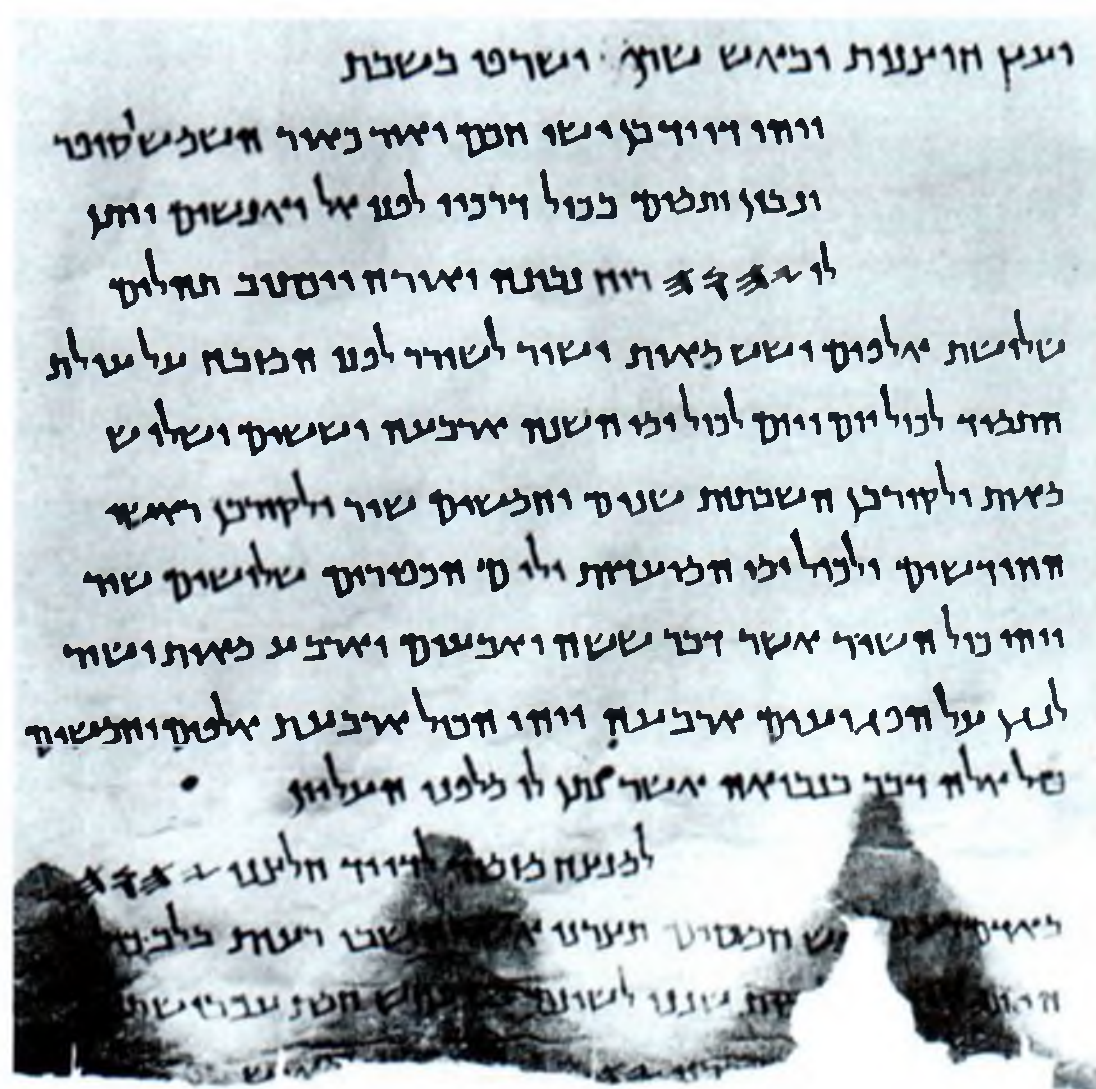 ועץ חנית ובאש שרוף ישרפו בשבת
ויהי דויד בן ישי חכם ואור כאור השמש סופר
ונבון ותמים בכול דרכיו לפני אל ואנשים ויתן
לו 𐤉𐤄𐤅𐤄 רוח נבונה ואורה ויכתוב תהלים
שלושת אלפים ושש מאות ושיר לשורר לפני המזבח על עולת
התמיד לכול יום ויום לכול ימי השנה ארבעה וששים ושלוש
מאות ולקורבן השבתות שנים וחמשים שיר ולקורבן ראשי
החודשים ולכול ימי המועדות ולים הכפורים שלושים שיר
ויהי כול השיר אשר דבר ששה ואבעים וארבע מאות ושיר
לנגן על הפגועים ארבעה ויהי הכול ארבעת אלפים וחמשים
כול אלה דבר בנבואה אשר נתן לו מלפני העליון
למנצח מזמור לדויד חלצני 𐤉𐤄𐤅𐤄
חמסים תצרני אשר חשבו רעות בלב
שננו לשונם נחש חמת עכביש